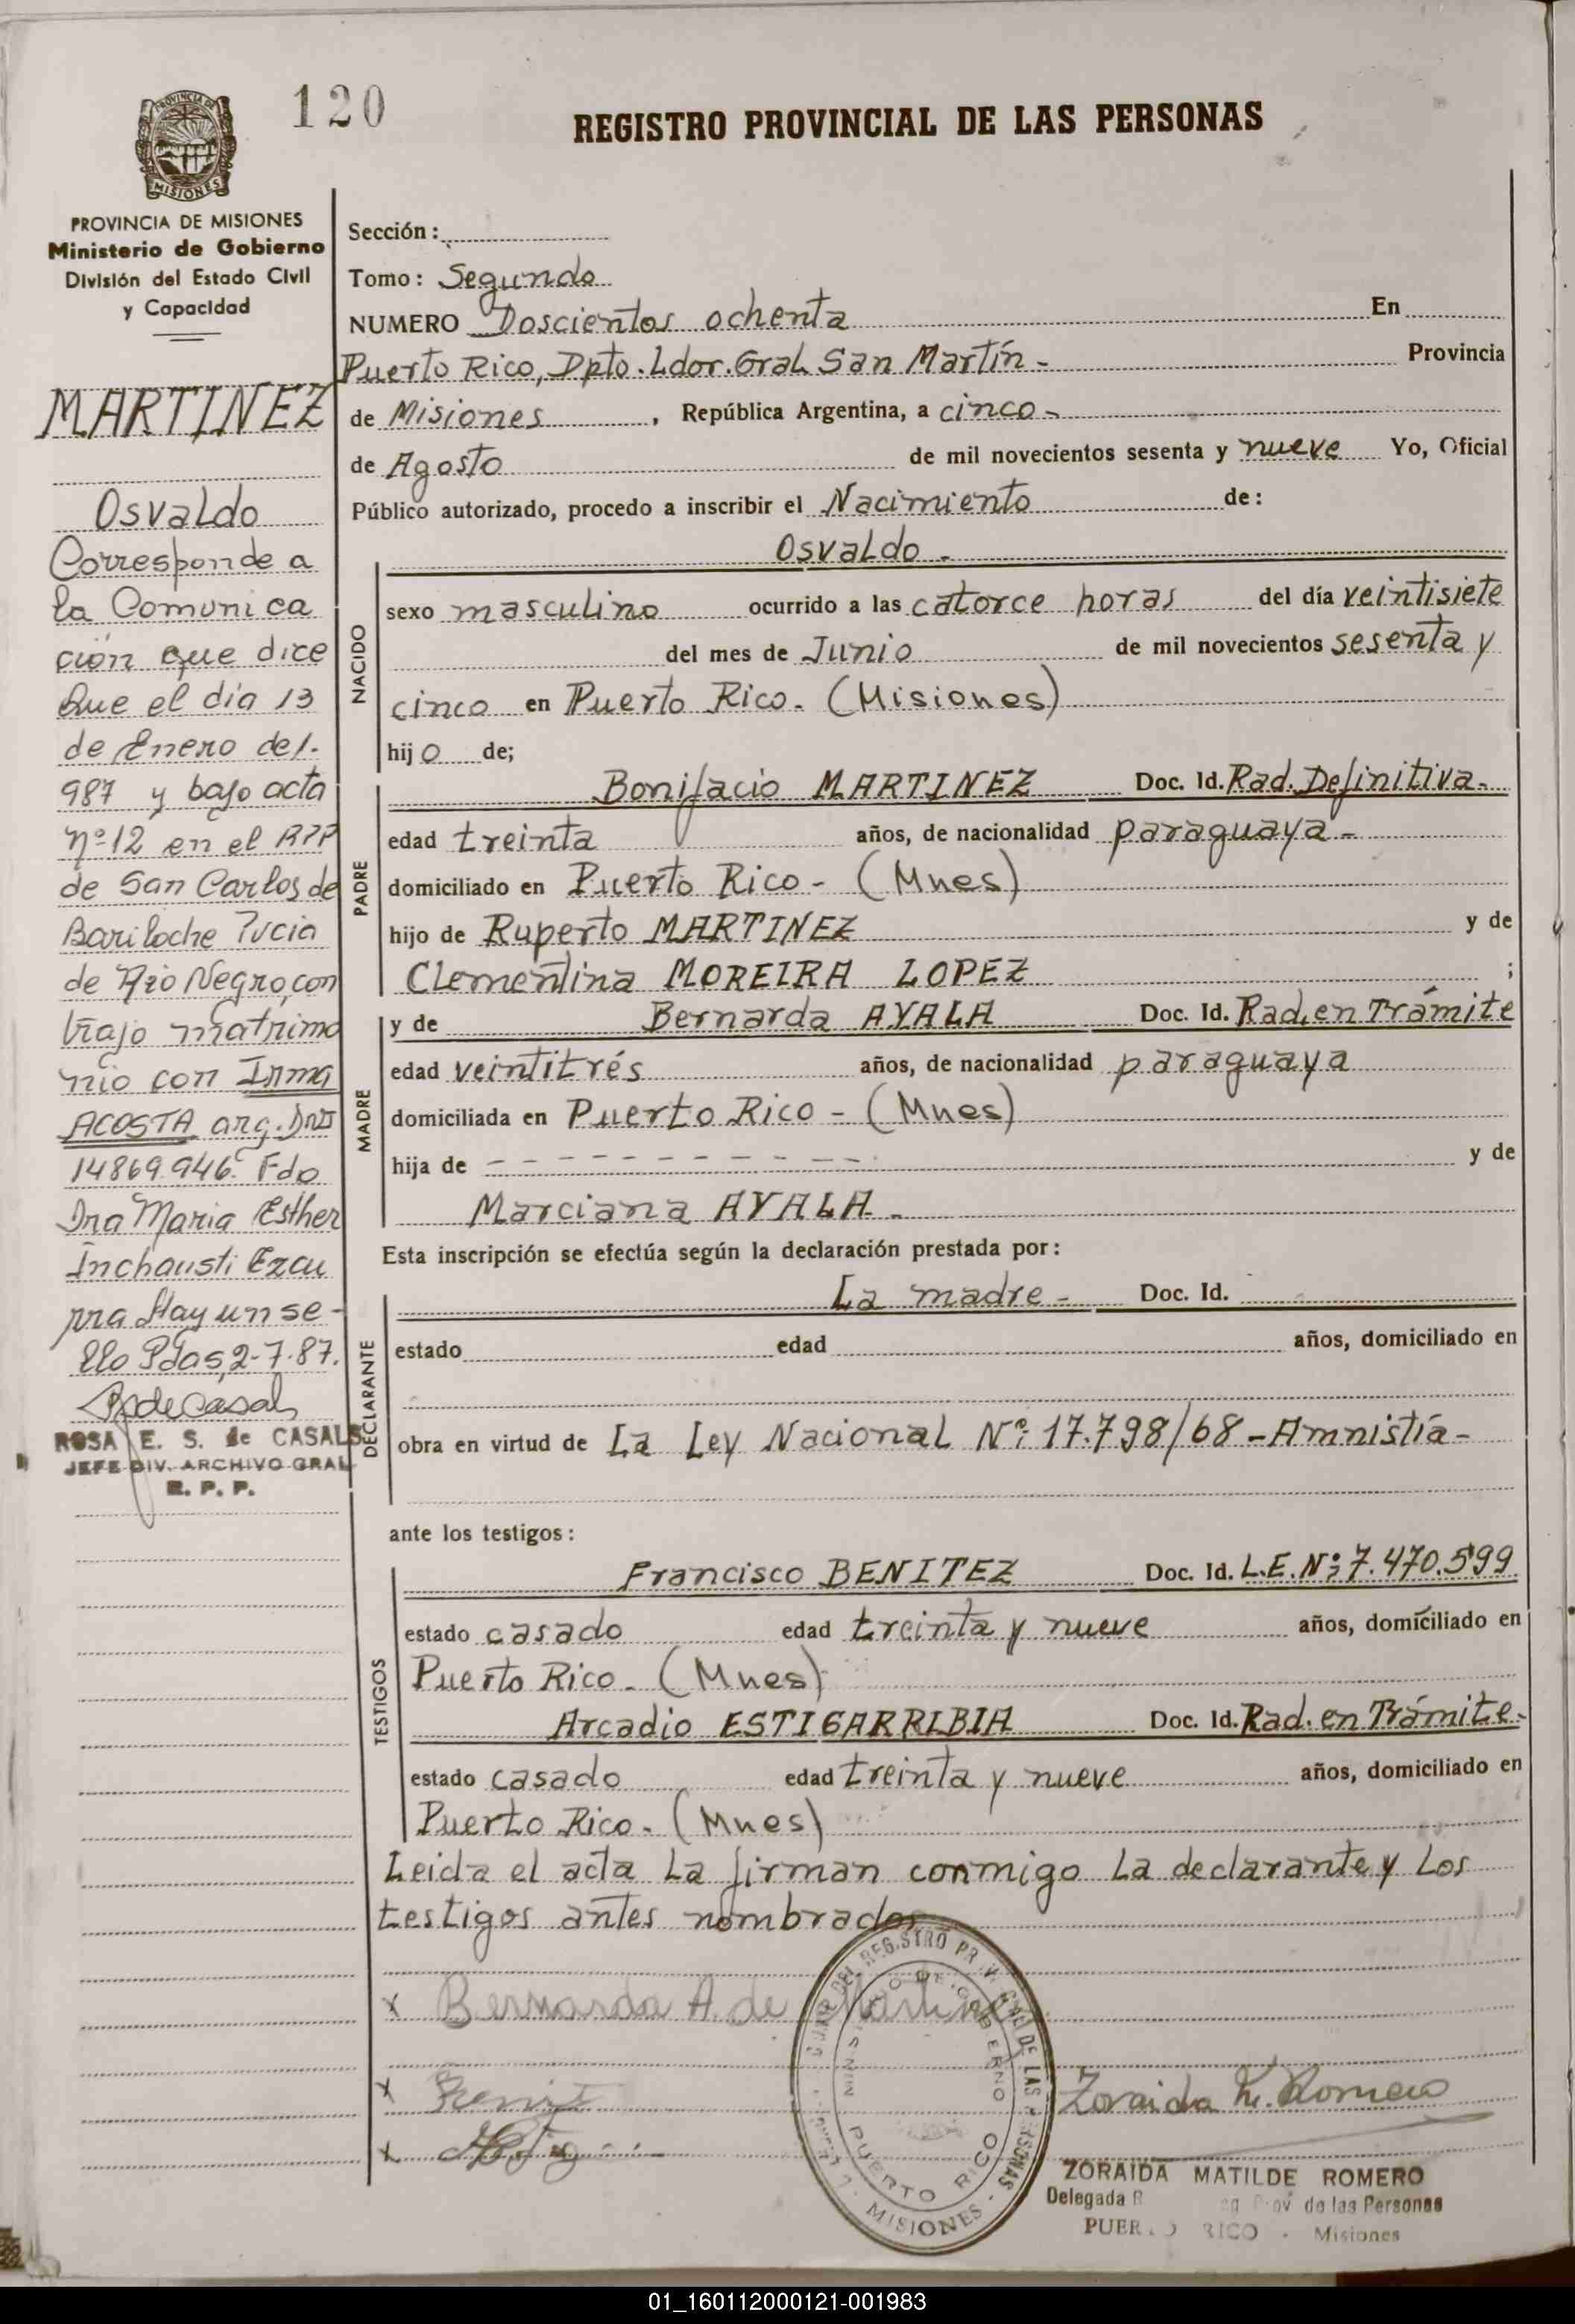 120
REGISTRO PROVINCIAL DE LAS PERSONAS
PROVINCIA DE
MISIONES
PROVINCIA DE MISIONES
Ministerio de Gobierno
División del Estado Civil
y Capacidad
MARTINEZ
Osvaldo
Corresponde a
la Comunica
ción que dice
Que el dia 13
de Enero de 1.
987 y bajo acta
nº 12 en el RPP
de San Carlos de
Bariloche Pvcia
de Rio Negro, con
trajo matrimo
nio con Irma
ACOSTA arg. DNI
14869.946. Fdo
Dra Maria Esther
Inchausti Ezcu
rra Hay un se-
llo Pdas, 2-7-87.
RdeCasals
ROSA E. S. de CASALS
JEFE DIV. ARCHIVO GRAL
R. P. P.
Sección:
Tomo: Segundo
NUMERO Doscientos ochenta En
Puerto Rico, Dpto. Ldor. Gral. San Martín - Provincia
de Misiones, República Argentina, a cinco -
de Agosto de mil novecientos sesenta y nueve Yo, Oficial
Público autorizado, procedo a inscribir el Nacimiento de:
NACIDO
Osvaldo -
sexo masculino ocurrido a las catorce horas del día veintisiete
del mes de Junio de mil novecientos sesenta y
cinco en Puerto Rico. (Misiones)
hijo de;
PADRE
Bonifacio MARTINEZ Doc. Id. Rad. Definitiva -
edad treinta años, de nacionalidad paraguaya -
domiciliado en Puerto Rico - (Mnes)
hijo de Ruperto MARTINEZ y de
Clementina MOREIRA LOPEZ ;
MADRE
y de Bernarda AYALA Doc. Id. Rad. en Trámite
edad veintitrés años, de nacionalidad paraguaya
domiciliada en Puerto Rico - (Mnes)
hija de - - - - - - - - - - - y de
Marciana AYALA -
Esta inscripción se efectúa según la declaración prestada por:
DECLARANTE
La madre - Doc. Id.
estado edad años, domiciliado en
obra en virtud de La Ley Nacional Nº: 17.798/68 - Amnistía -
ante los testigos:
TESTIGOS
Francisco BENITEZ Doc. Id. L.E. Nº: 7.470.599
estado casado edad treinta y nueve años, domiciliado en
Puerto Rico - (Mnes)
Arcadio ESTIGARRIBIA Doc. Id. Rad. en Trámite -
estado casado edad treinta y nueve años, domiciliado en
Puerto Rico - (Mnes)
Leida el acta La firman conmigo La declarante y Los
testigos antes nombrados
x Bernarda A. de Martinez
x
x
DE LAS PERSONAS
MINISTERIO DE GOBIERNO
PUERTO RICO
MISIONES
Zoraida M. Romero
ZORAIDA MATILDE ROMERO
Delegada de las Personas
PUERTO RICO - Misiones
01_160112000121-001983